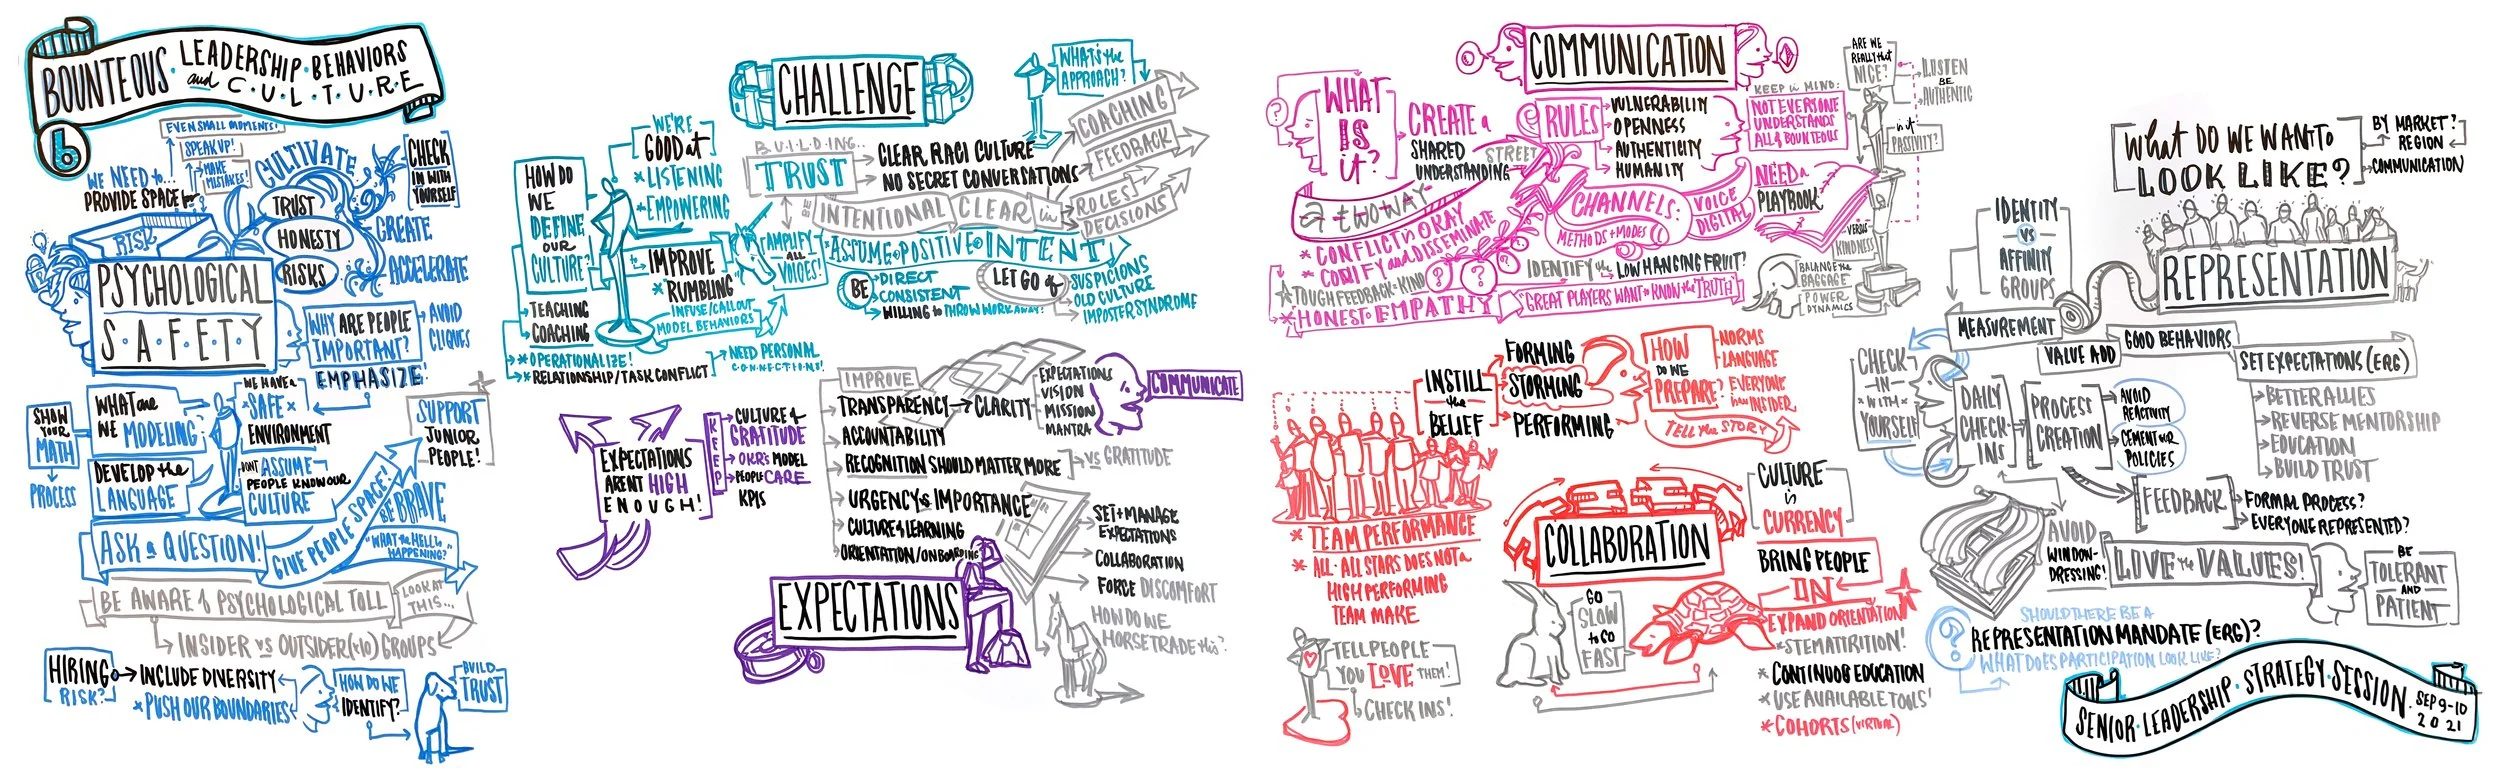 BOUNTEOUS · LEADERSHIP · BEHAVIORS
and C·U·L·T·U·R·E
b
EVEN SMALL MOMENTS!
SPEAK UP!
MAKE
MISTAKES!
WE NEED to...
PROVIDE SPACE for
CULTIVATE
TRUST
HONESTY
RISKS
CREATE
ACCELERATE
CHECK
IN WITH
YOURSELF
RISK
PSYCHOLOGICAL
S·A·F·E·T·Y
WHY ARE PEOPLE
IMPORTANT?
EMPHASIZE!
AVOID
CLIQUES
SHOW
YOUR
MATH
PROCESS
WHAT are
WE MODELING
DEVELOP the
LANGUAGE
WE HAVE a
SAFE
ENVIRONMENT
DON'T ASSUME
PEOPLE KNOW OUR
CULTURE
SUPPORT
JUNIOR
PEOPLE!
ASK a QUESTION!
GIVE PEOPLE SPACE!
BE BRAVE
"WHAT the HELL is
HAPPENING?"
BE AWARE of PSYCHOLOGICAL TOLL
LOOK AT
THIS...
INSIDER vs OUTSIDER (x10) GROUPS
HIRING
RISK?
INCLUDE DIVERSITY
* PUSH OUR BOUNDARIES
HOW DO WE
IDENTIFY?
BUILD
TRUST
CHALLENGE
WHAT'S the
APPROACH?
HOW DO
WE
DEFINE
OUR
CULTURE?
TEACHING
COACHING
* OPERATIONALIZE!
* RELATIONSHIP/TASK CONFLICT
NEED PERSONAL
CONNECTION!
WE'RE
GOOD at
* LISTENING
* EMPOWERING
to IMPROVE
* "RUMBLING"
INFUSE/CALLOUT
MODEL BEHAVIORS
BUILDING...
TRUST
CLEAR RACI CULTURE
NO SECRET CONVERSATIONS
COACHING
FEEDBACK
BE
INTENTIONAL
CLEAR in
ROLES
DECISIONS
AMPLIFY
ALL
VOICES!
ASSUME · POSITIVE · INTENT
BE
DIRECT
CONSISTENT
WILLING to THROW WORK AWAY!
LET GO of
SUSPICIONS
OLD CULTURE
IMPOSTER SYNDROME
EXPECTATIONS
ARENT HIGH
ENOUGH!
KEEP
CULTURE of
GRATITUDE
OKR's MODEL
PEOPLE CARE
KPIS
IMPROVE
TRANSPARENCY
CLARITY
EXPECTATIONS
VISION
MISSION
MANTRA
COMMUNICATE
ACCOUNTABILITY
RECOGNITION SHOULD MATTER MORE
vs GRATITUDE
URGENCY vs IMPORTANCE
CULTURE of LEARNING
ORIENTATION/ONBOARDING
EXPECTATIONS
SET + MANAGE
EXPECTATIONS
COLLABORATION
FORCE DISCOMFORT
HOW DO WE
HORSETRADE this?
COMMUNICATION
?
WHAT
IS
it?
CREATE a
SHARED
UNDERSTANDING
a TWOWAY
STREET
RULES
VULNERABILITY
OPENNESS
AUTHENTICITY
HUMANITY
KEEP in MIND:
NOT EVERYONE
UNDERSTANDS
ALL of BOUNTEOUS
ARE WE
REALLY that
NICE?
LISTEN
BE
AUTHENTIC
is it
PASSIVITY?
VERSUS
KINDNESS
CHANNELS:
VOICE
DIGITAL
METHODS + MODES
NEED a
PLAYBOOK
* CONFLICT is OKAY
* CODIFY and DISSEMINATE
TOUGH FEEDBACK = KIND
* HONEST EMPATHY
? ? ?
IDENTIFY the LOW HANGING FRUIT?
"GREAT PLAYERS WANT to KNOW the TRUTH"
BALANCE the
BAGGAGE
POWER
DYNAMICS
INSTILL
the
BELIEF
FORMING
STORMING
PERFORMING
HOW
DO WE
PREPARE?
NORMS
LANGUAGE
EVERYONE
INSIDER
TELL the STORY
* TEAM PERFORMANCE
* ALL-ALL STARS DOES NOT a
HIGH PERFORMING
TEAM MAKE
TELL PEOPLE
YOU LOVE THEM!
CHECK INS!
COLLABORATION
CULTURE
is
CURRENCY
BRING PEOPLE
IN
GO
SLOW
to GO
FAST
EXPAND ORIENTATION
* STEM ATTRITION!
* CONTINUOUS EDUCATION
* USE AVAILABLE TOOLS!
* COHORTS (VIRTUAL)
What DO WE WANT to
LOOK LIKE?
BY MARKET?
REGION
COMMUNICATION
IDENTITY
VS
AFFINITY
GROUPS
REPRESENTATION
MEASUREMENT
VALUE ADD
GOOD BEHAVIORS
SET EXPECTATIONS (ERG)
BETTER ALLIES
REVERSE MENTORSHIP
EDUCATION
BUILD TRUST
CHECK
-IN-
WITH
YOURSELF
DAILY
CHECK-
INS
PROCESS
CREATION
AVOID
REACTIVITY
CEMENT our
POLICIES
FEEDBACK
FORMAL PROCESS?
EVERYONE REPRESENTED?
AVOID
WINDOW-
DRESSING!
LIVE the VALUES!
BE
TOLERANT
AND
PATIENT
?
SHOULD THERE BE A
REPRESENTATION MANDATE (ERG)?
WHAT DOES PARTICIPATION LOOK LIKE?
SENIOR · LEADERSHIP · STRATEGY · SESSION ·
SEP 9-10
2021